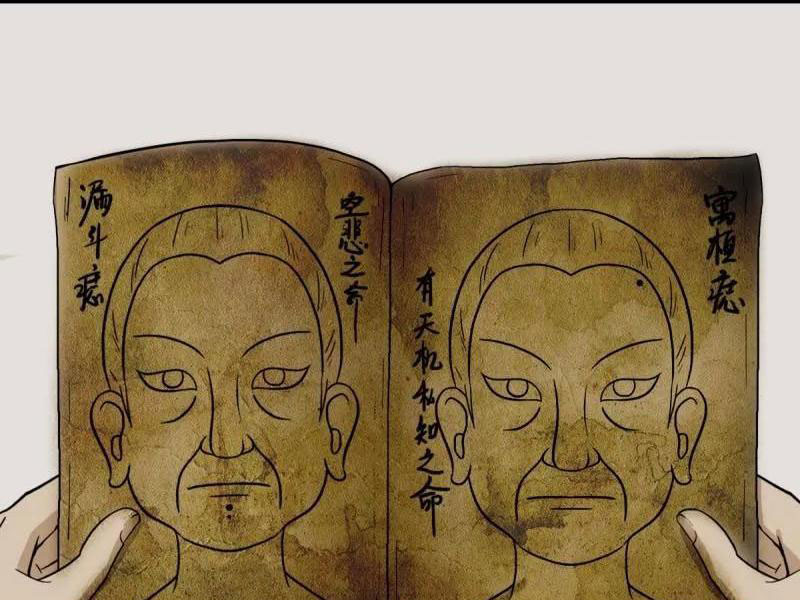 寓植痣
有天机私知之命
空悲之命
漏斗痣